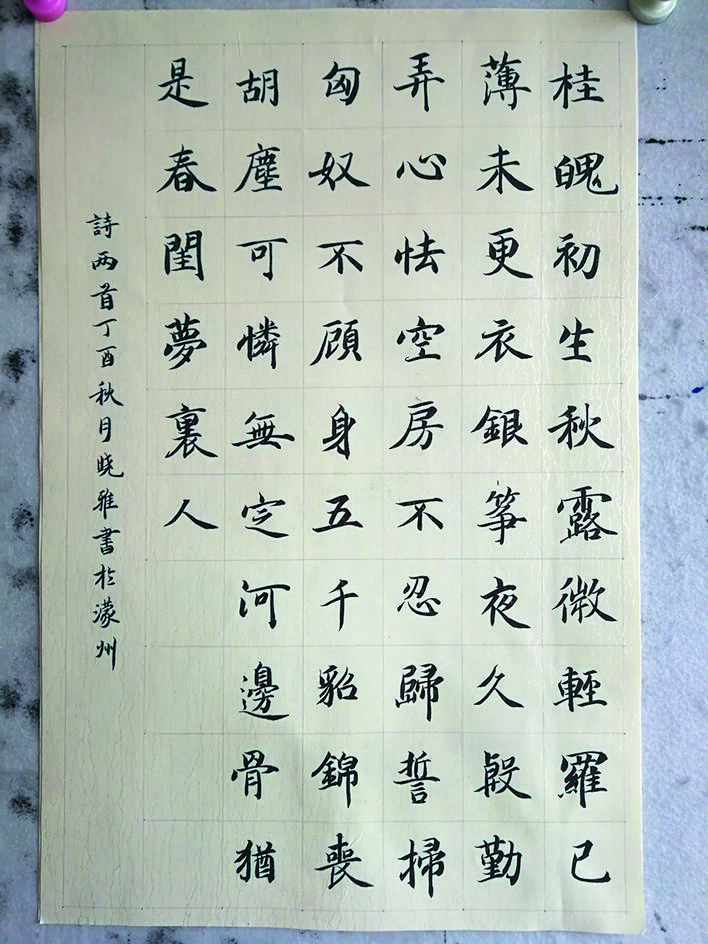 桂魄初生秋露微輕羅已
薄未更衣銀箏夜久殷勤
弄心怯空房不忍歸誓掃
匈奴不顧身五千貂錦喪
胡塵可憐無定河邊骨猶
是春閨夢裏人
詩两首丁酉秋月晓雅書於濛州